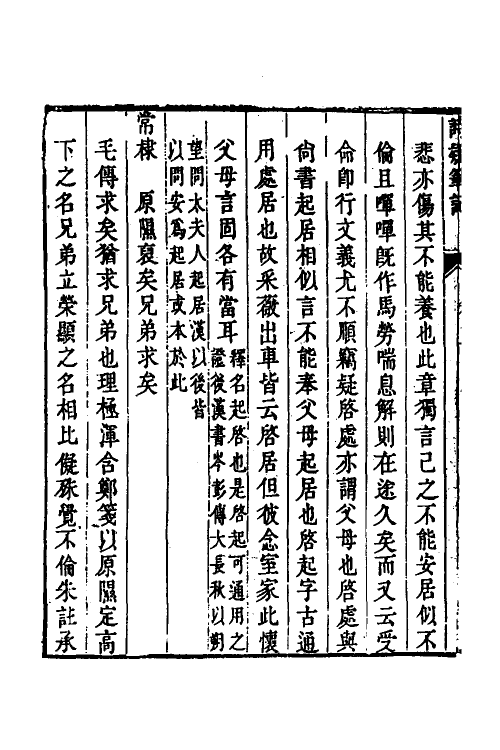 悲亦傷其不能養也此章獨言己之不能安居似不
倫且嘽嘽旣作馬勞喘息解則在途久矣而又云受
命卽行文義尤不順竊疑啓處亦謂父母也啓處與
尙書起居相似言不能奉父母起居也啓起字古通
用處居也故采薇出車皆云啓居但彼念室家此懷
父母言固各有當耳釋名起啓也是啓起可通用之
證後漢書岑彭傳大長秋以朔
望問太夫人起居漢以後皆
以問安爲起居或本於此
常棣 原隰裒矣兄弟求矣
毛傳求矣猶求兄弟也理極渾含鄭箋以原隰定高
下之名兄弟立榮顯之名相比儗殊覺不倫朱註承